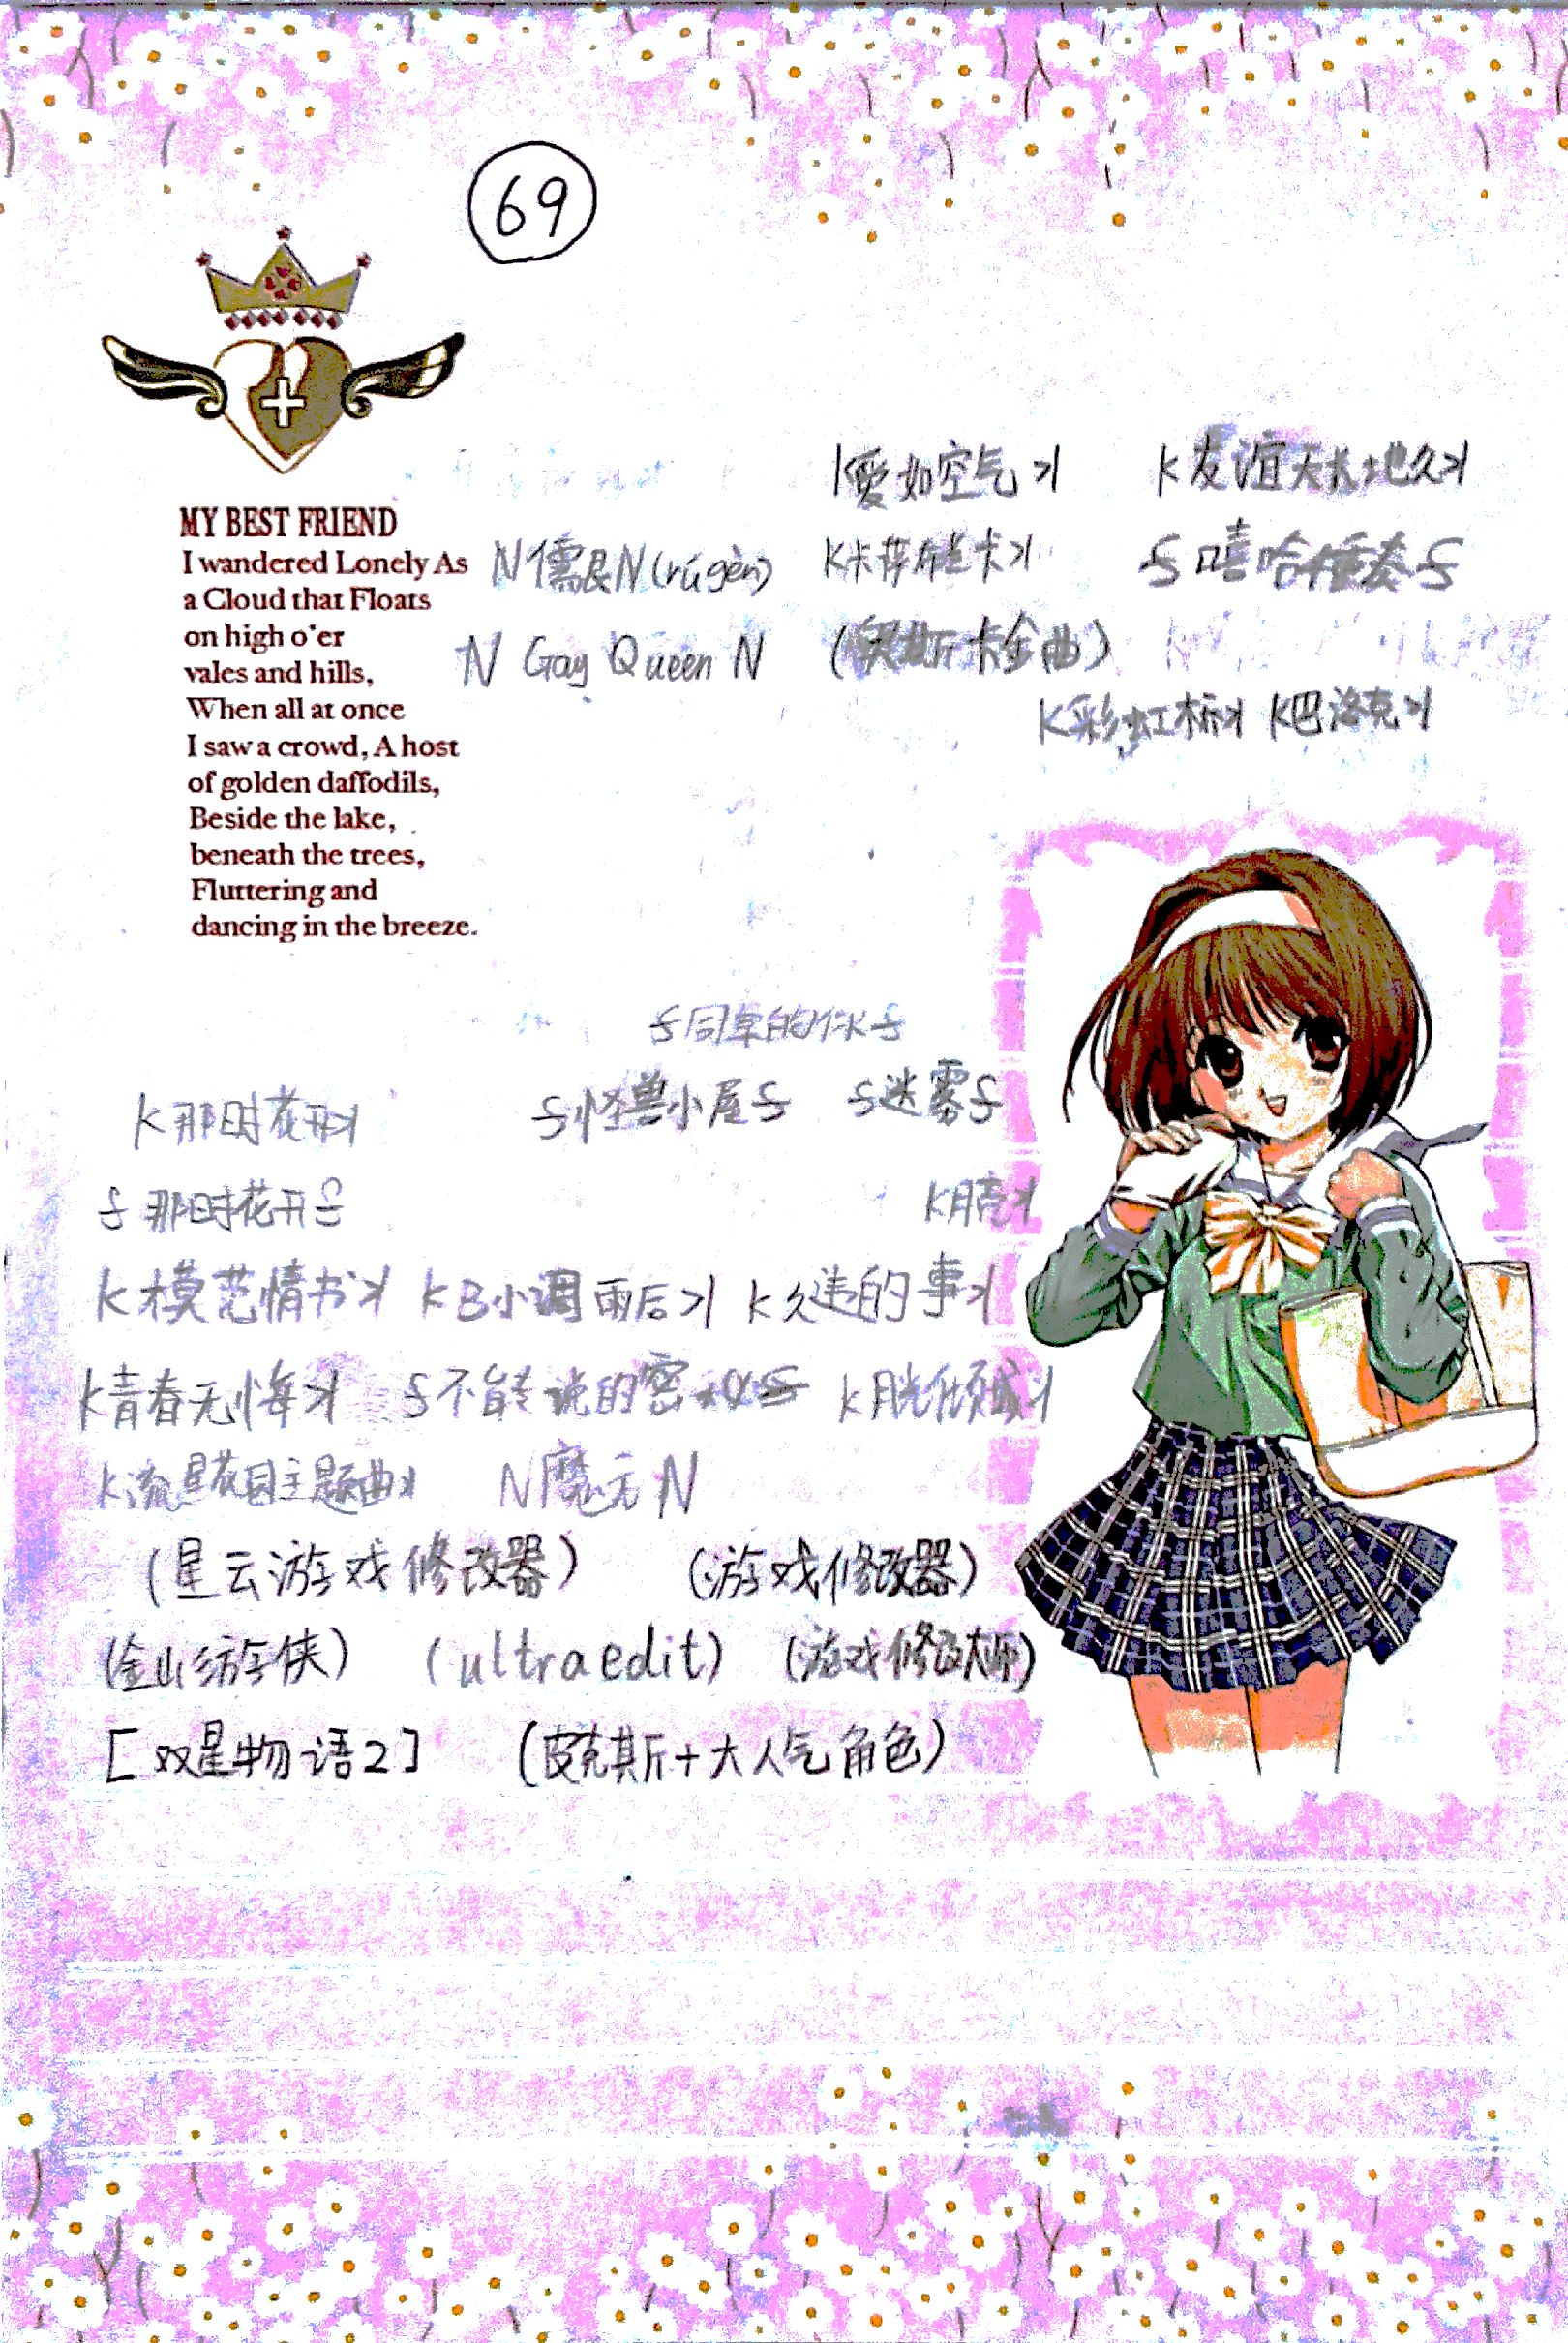 69
K愛如空气K
K友谊天长地久K
MY BEST FRIEND
I wandered Lonely As
a Cloud that Floats
on high o'er
vales and hills,
When all at once
I saw a crowd, A host
of golden daffodils,
Beside the lake,
beneath the trees,
Fluttering and
dancing in the breeze.
N儒艮N(rúgèn)
K卡萨布兰卡K
ક嘻哈重奏ક
N Gay Queen N
(奥斯卡金曲)
K彩虹桥K K巴洛克K
ક同桌的你ક
K那时花开K
ક怪兽小屋ક
ક迷雾ક
ક那时花开ક
K月亮K
K模范情书K
KB小调雨后K
K久违的事K
K青春无悔K
ક不能说的密
K月光倾城K
K流星花园主题曲K
N N
(星云游戏修改器)
(游戏修改器)
(金山游侠)
(ultraedit)
(游戏修改大师)
[双星物语2]
(皮克斯十大人气角色)